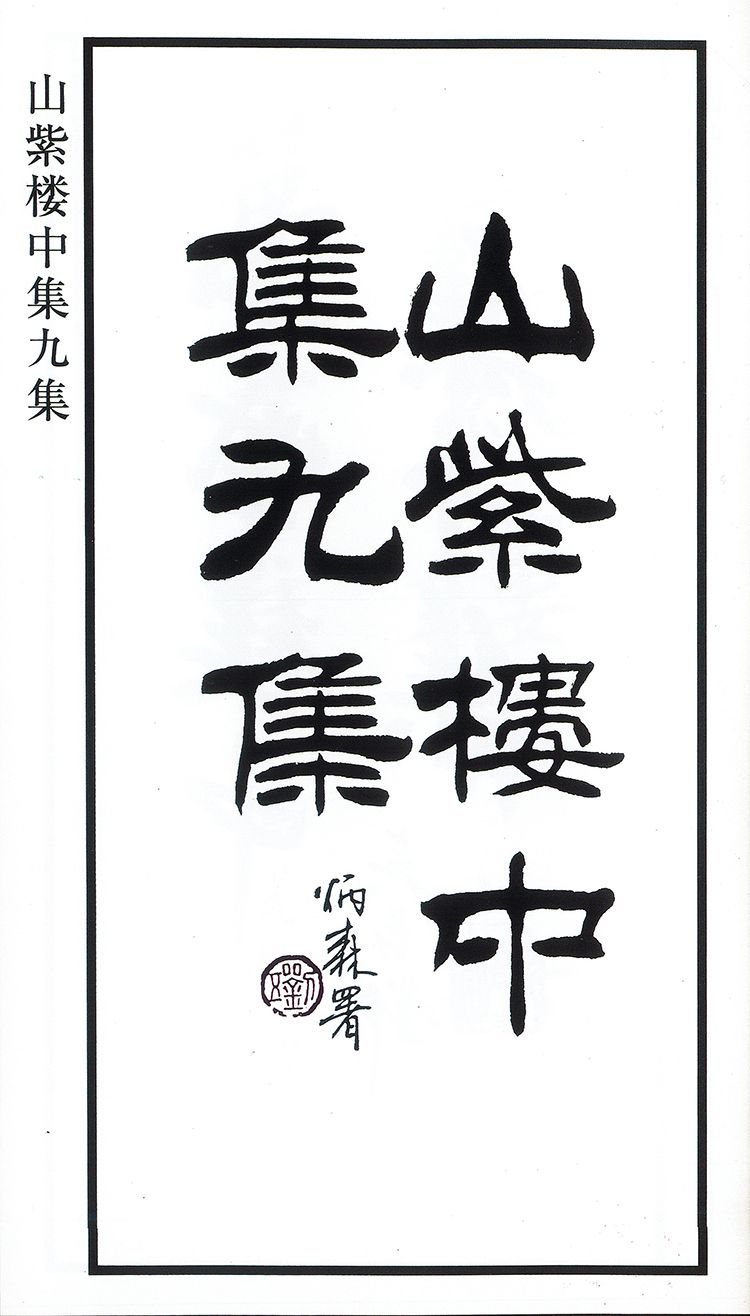 山紫楼中集九集
山紫樓中
集九集
炳森署